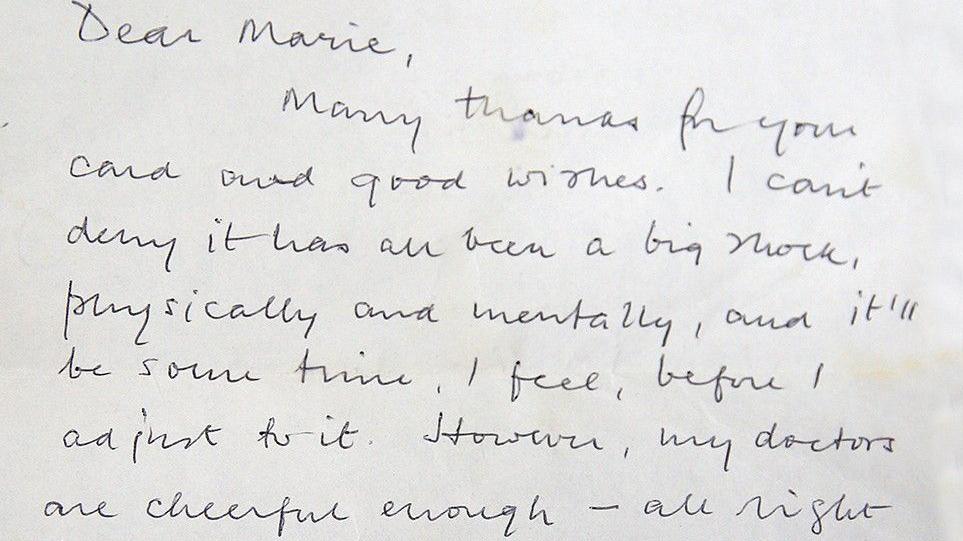 Dear Marie,
Many thanks for your
card and good wishes. I can't
deny it has all been a big shock,
physically and mentally, and it'll
be some time, I feel, before I
adjust to it. However, my doctors
are cheerful enough – all right